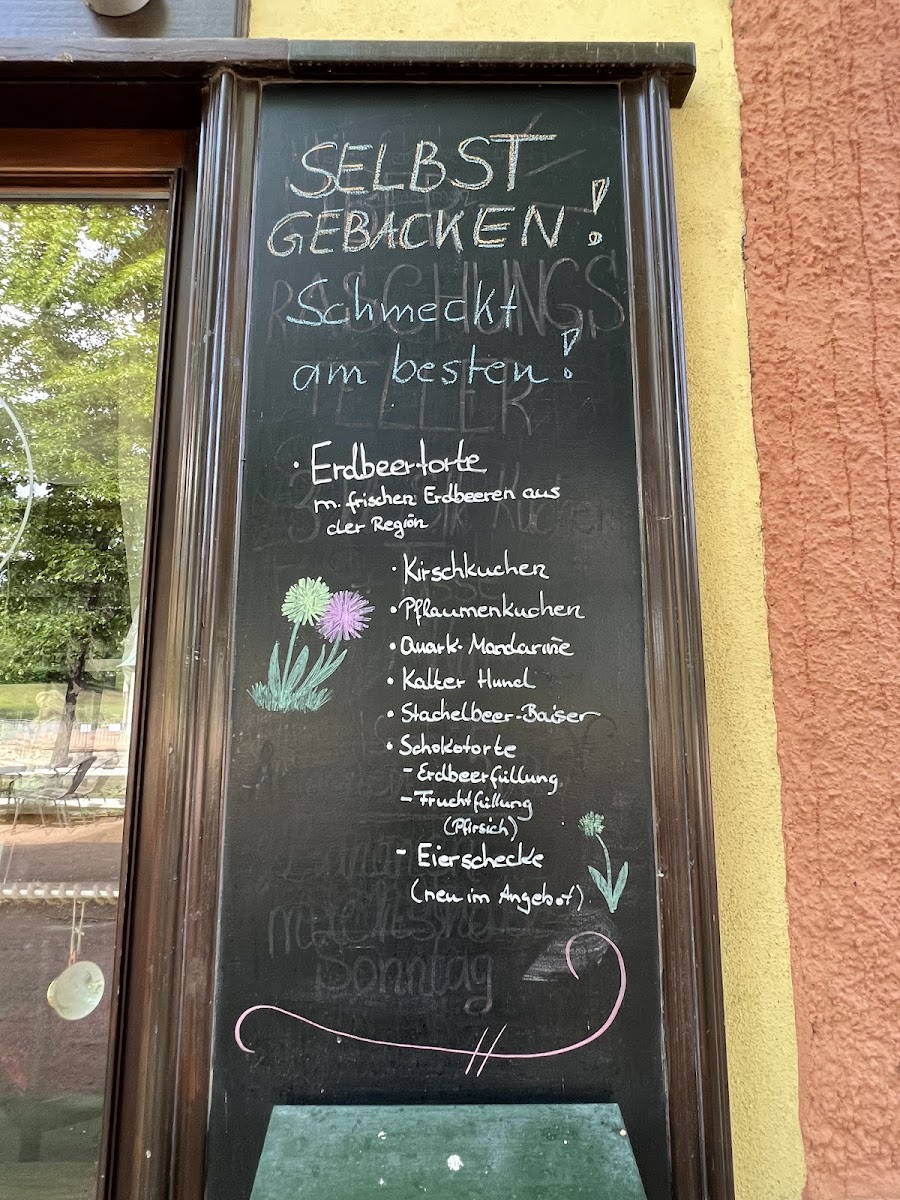 SELBST
GEBACKEN!
Schmeckt
am besten!
• Erdbeertorte
m. frischen Erdbeeren aus
der Region
• Kirschkuchen
• Pflaumenkuchen
• Quark-Mandarine
• Kalter Hund
• Stachelbeer-Baiser
• Schokotorte
- Erdbeerfüllung
- Fruchtfüllung
(Pfirsich)
- Eierschecke
(neu im Angebot)
Sonntag